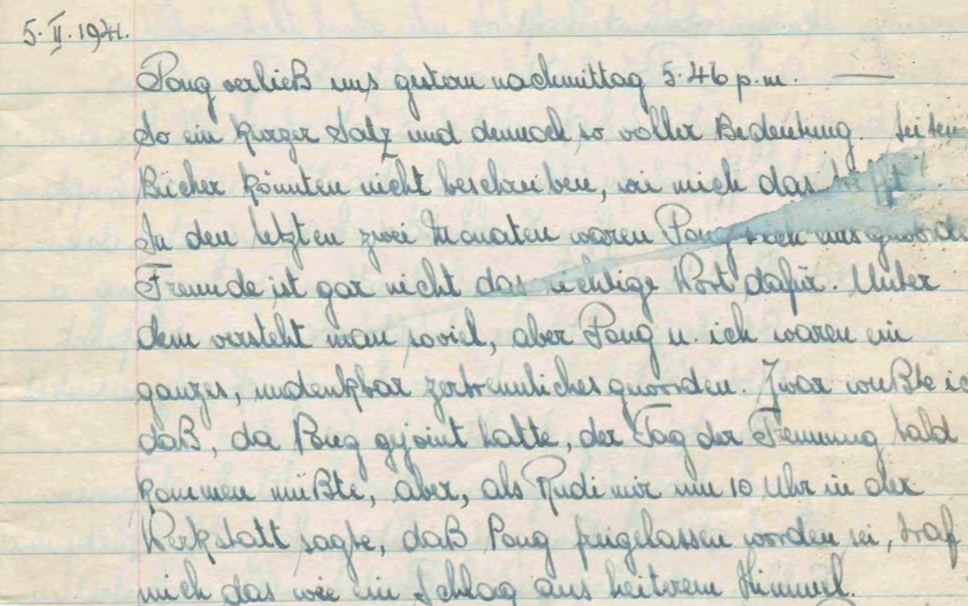 5. II. 1941.
Pong verließ uns gestern nachmittag 5.46 p.m. —
So ein kurzer Satz und dennoch so voller Bedeutung.
Bücher könnten nicht beschreiben, wie mich das
In den letzten zwei Monaten waren Pong
Freunde ist gar nicht das richtige Wort dafür. Unter
dem versteht man soviel, aber Pong u. ich waren ein
ganzes, undenkbar zertrennliches geworden. Zwar wußte ic
daß, da Pong gejoint hatte, der Tag der Trennung bald
kommen müßte, aber, als Rudi mir um 10 Uhr in der
Werkstatt sagte, daß Pong freigelassen worden sei, traf
mich das wie ein Schlag aus heiterem Himmel.